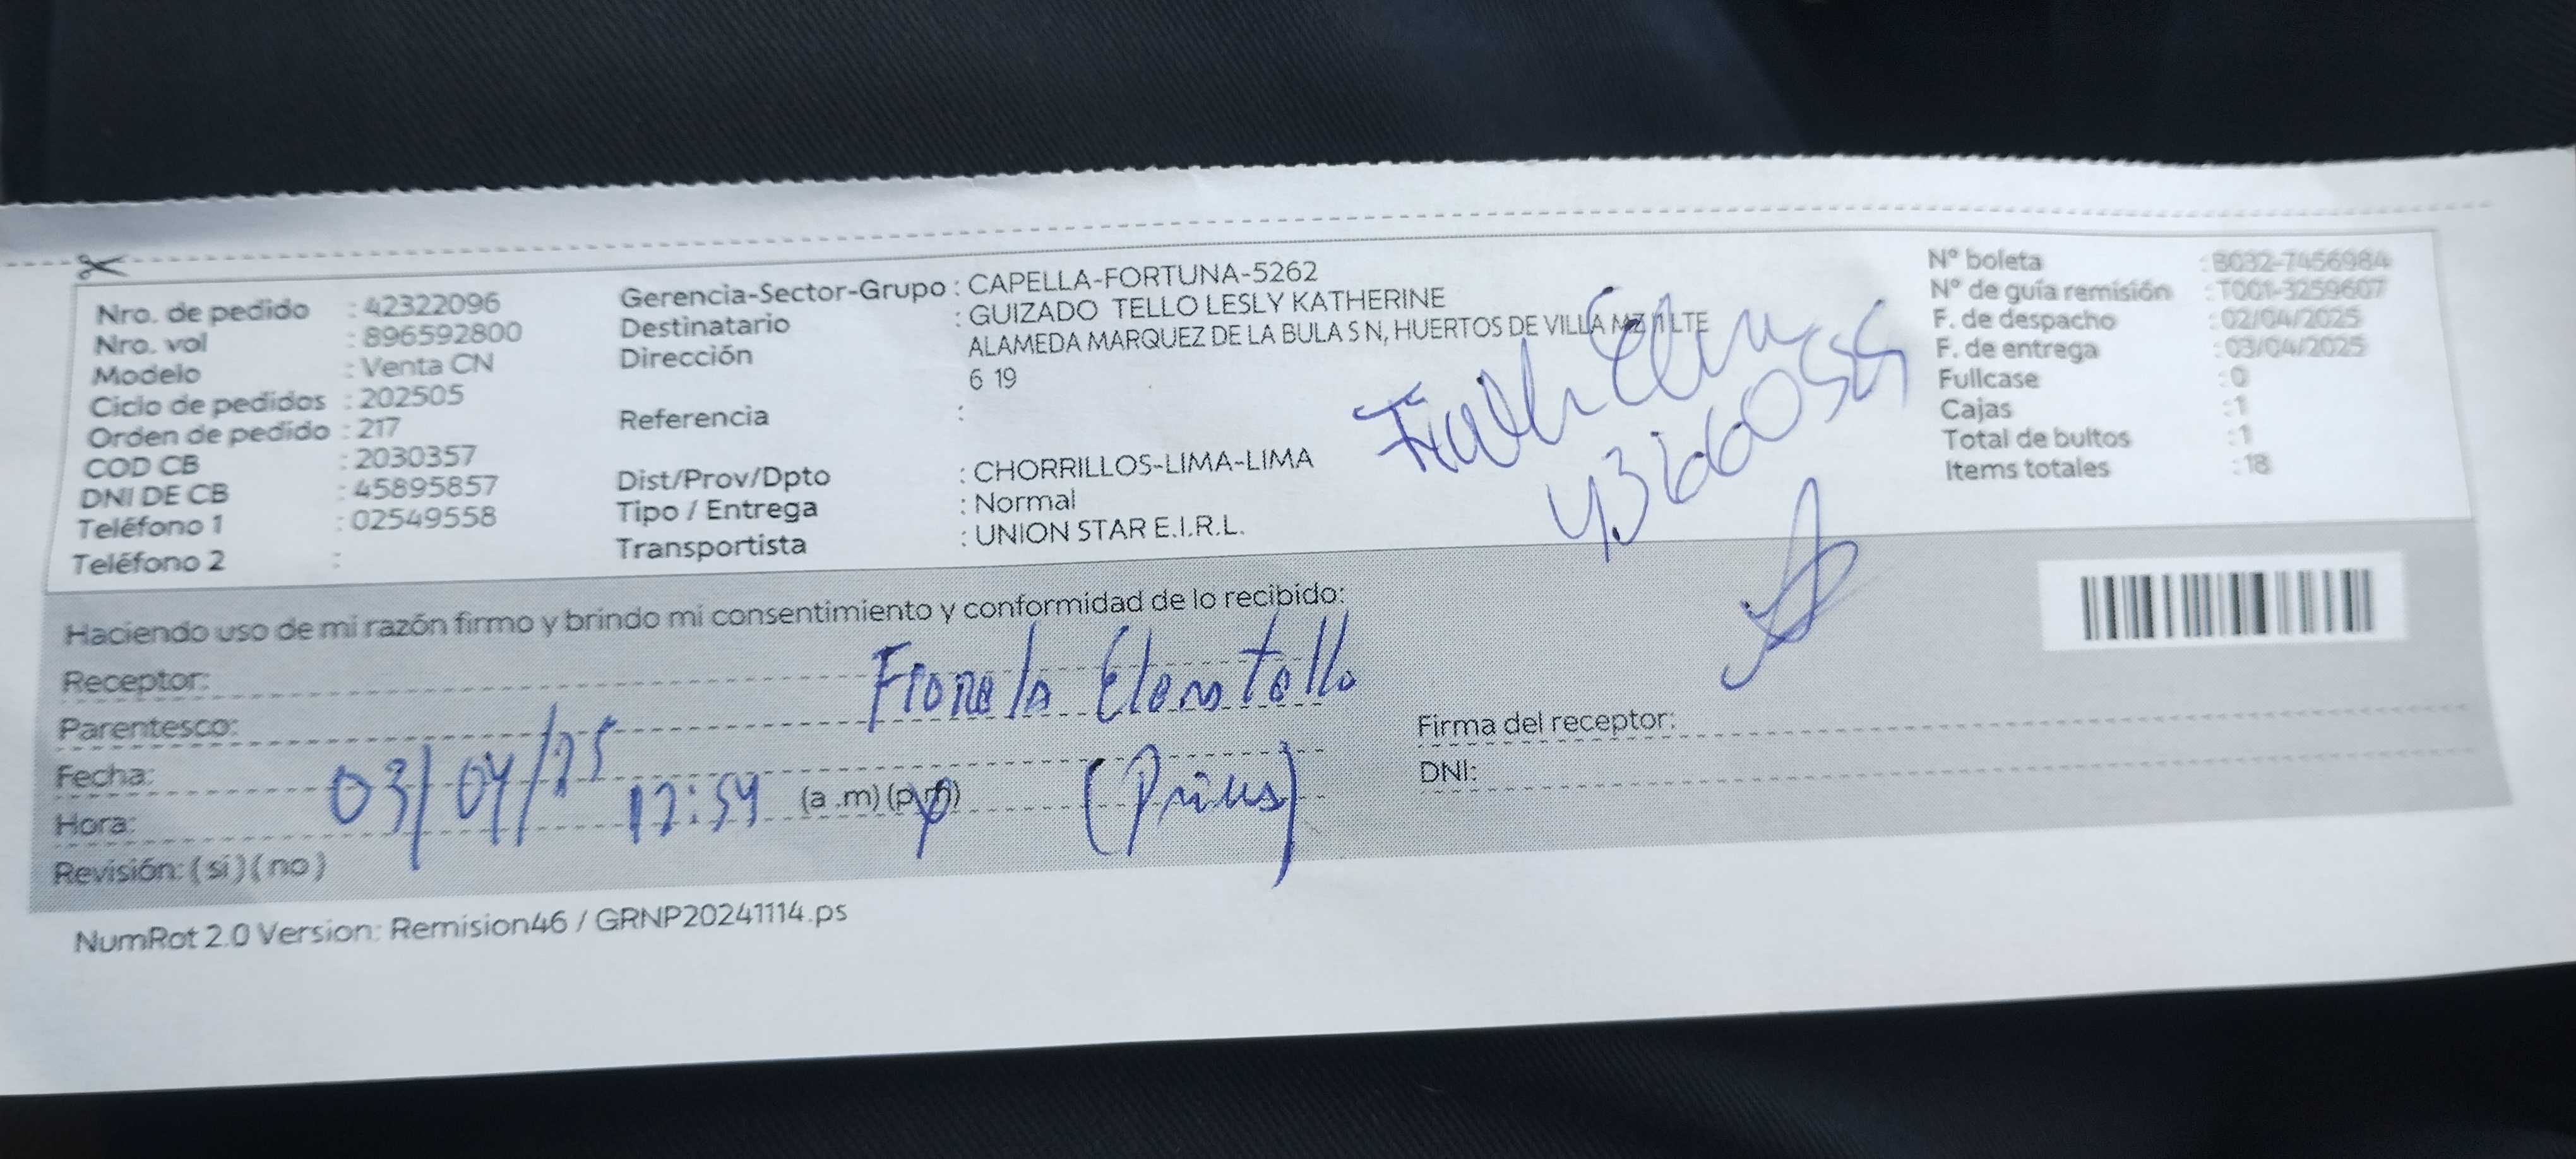 Nro. de pedido : 42322096
Nro. vol : 896592800
Modelo : Venta CN
Ciclo de pedidos : 202505
Orden de pedido : 217
COD CB : 2030357
DNI DE CB : 45895857
Teléfono 1 : 02549558
Teléfono 2 :
Gerencia-Sector-Grupo : CAPELLA-FORTUNA-5262
Destinatario : GUIZADO TELLO LESLY KATHERINE
Dirección ALAMEDA MARQUEZ DE LA BULA S N, HUERTOS DE VILLA MZ 1 LTE
6 19
Referencia :
Dist/Prov/Dpto : CHORRILLOS-LIMA-LIMA
Tipo / Entrega : Normal
Transportista : UNION STAR E.I.R.L.
N° boleta : B032-7456984
N° de guía remisión : T001-3259607
F. de despacho : 02/04/2025
F. de entrega : 03/04/2025
Fullcase : 0
Cajas : 1
Total de bultos : 1
Items totales : 18
Haciendo uso de mi razón firmo y brindo mi consentimiento y conformidad de lo recibido:
Receptor:
Parentesco:
Fecha: 03/04/25
Hora: 12:54 (a .m) (p.m)
Revisión: ( sí ) ( no )
Tello
Firma del receptor:
DNI:
NumRot 2.0 Version: Remision46 / GRNP20241114.ps